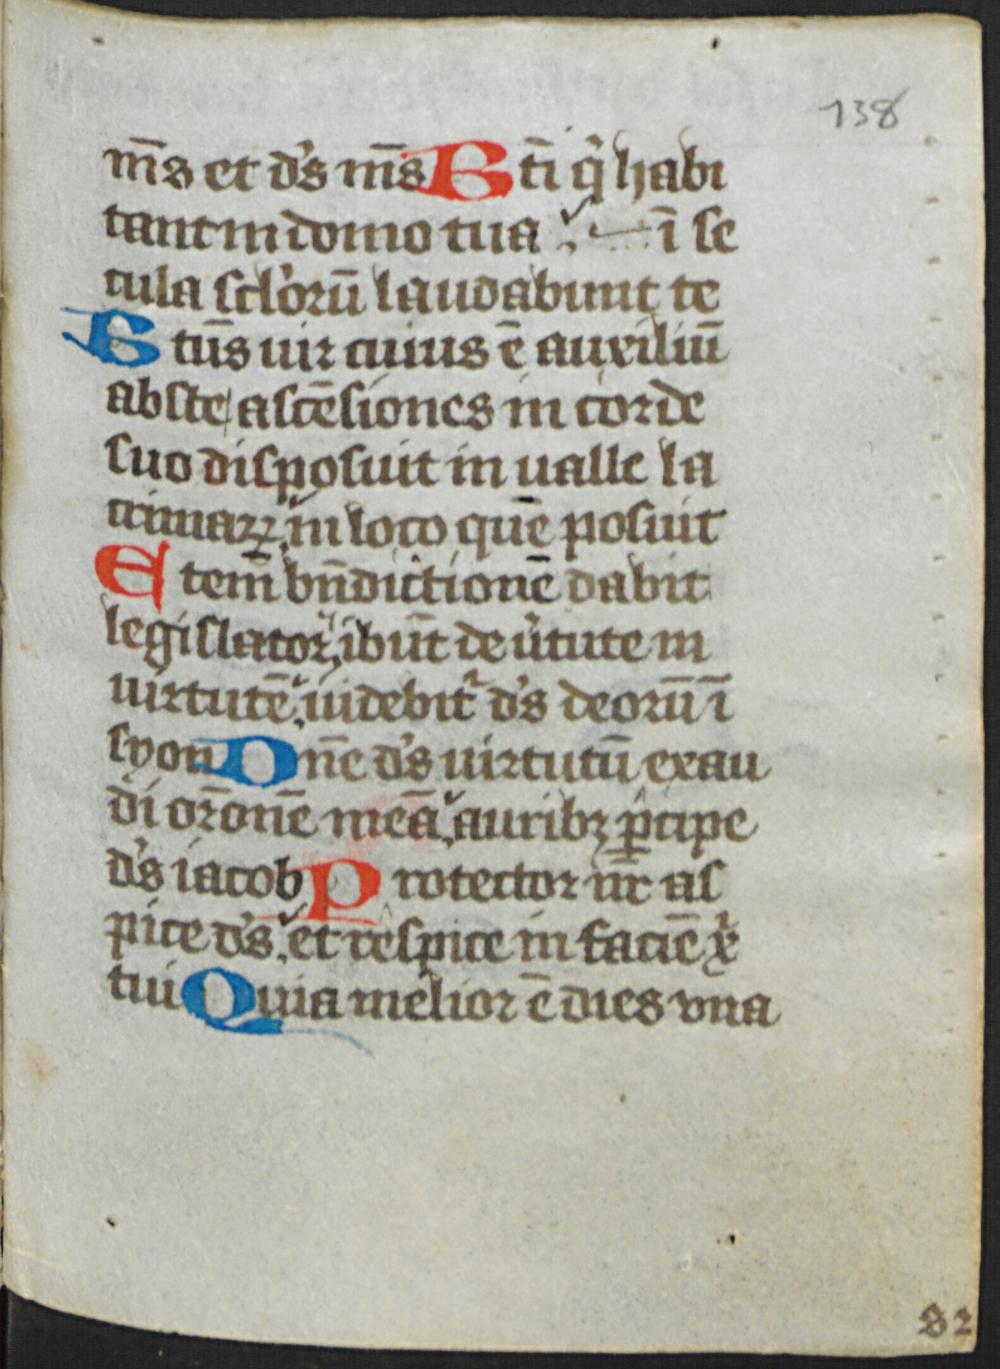 138
m̄s et d̓s m̄s B ti̅ q̓ habi
tant in domo tua i̅ se
cula sclo̓ru̅ laudabunt te
B tu̅s uir cuius e̅ auxiliu̅
abs te asce̅siones in corde
suo disposuit in ualle la
crimaꝝ in loco que̅ posuit
E tem̅ bn̅dictione̅ dabit
legislator ibu̅t de u̓tute in
uirtute̅ uidebit᷑ d̓s deoru̅ i̅
syon D ne̅ d̓s uirtutu̅ exau
di or̅one̅ mea̅ auribꝫ p̓cipe
d̓s iacob P rotector nr̅ as
pice d̓s et respice in facie̅ xp̓i
tui Q uia melior e̅ dies vna
82